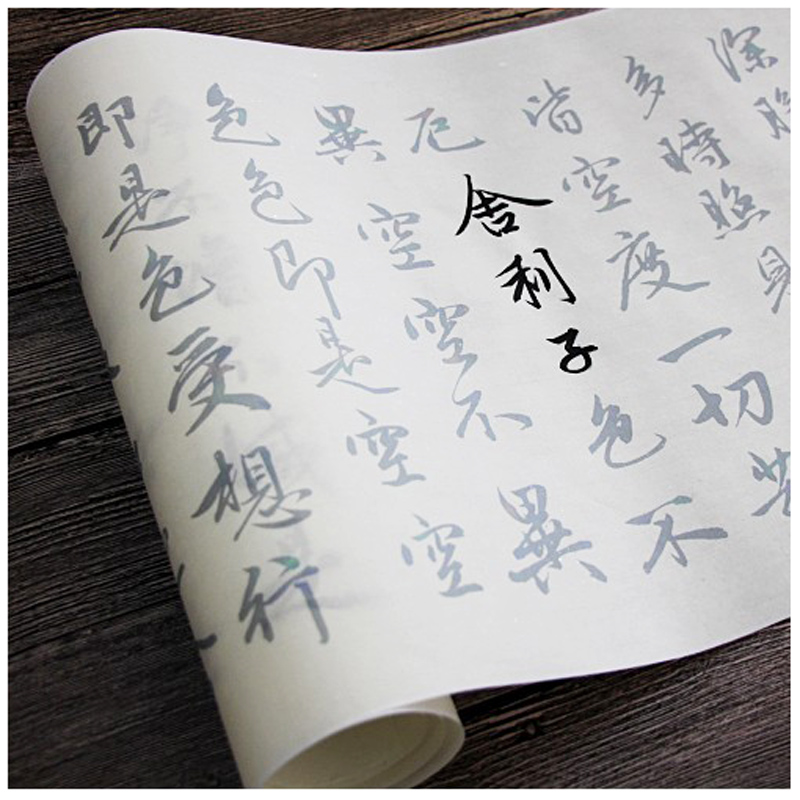 深
多時照見
皆空度一切苦
厄舍利子色不
異空空不異
色色即是空空
即是色受想行